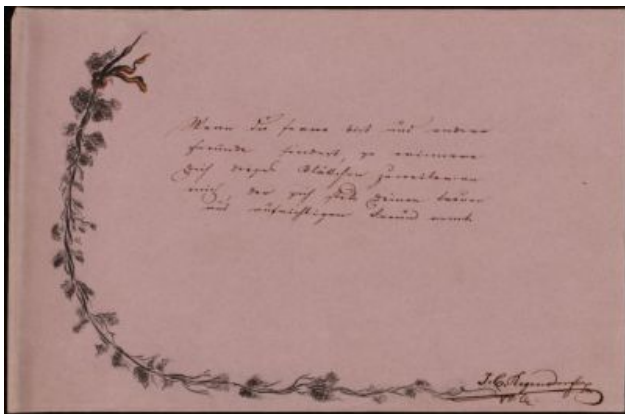 Wenn du ferne bist und andere
Freunde findest, so erinnere
Dich dieses Blättchen zuweilen an
mich, der sich stets Deinen treuen
und aufrichtigen Freund nennt
J. C.